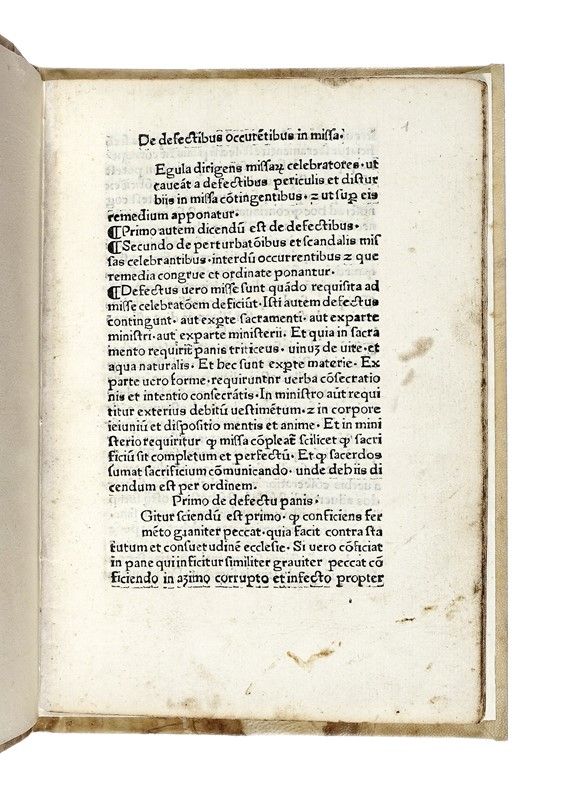 De defectibus occurẽtibus in missa.
Egula dirigens missaꝝ celebratores. ut
caueãt a defectibus periculis et distur
biis in missa cõtingentibus. ⁊ ut suꝑ eis
remedium apponatur.
¶Primo autem dicendũ est de defectibus.
¶Secundo de perturbatõibus et scandalis mis
sas celebrantibus. interdũ occurrentibus ⁊ que
remedia congrue et ordinate ponantur.
¶Defectus uero misse sunt quãdo requisita ad
misse celebratõem deficiũt. Isti autem defectus
contingunt. aut exꝑte sacramenti. aut exparte
ministri. aut exparte ministerii. Et quia in sacra
mento requirit̃ panis triticeus. uinuꝫ de uite. et
aqua naturalis. Et hec sunt exꝑte materie. Ex
parte uero forme. requiruntnr uerba cõsecratio
nis et intentio consecrãtis. In ministro aũt requi
titur exterius debitũ uestimẽtum. ⁊ in corpore
ieiuniũ et dispositio mentis et anime. Et in mini
sterio requiritur ꝙ missa cõpleat̃ scilicet ꝙ sacri
ficiũ sit completum et perfectũ. Et ꝙ sacerdos
sumat sacrificium cõmunicando. unde de biis di
cendum est per ordinem.
Primo de defectu panis.
Gitur sciendũ est primo. ꝙ conficiens fer
mẽto grauiter peccat. quia facit contra sta
tutum et consuetudinẽ ecclesie. Si uero cõficiat
in pane qui inficitur similiter grauiter peccat cõ
ficiendo in azimo corrupto et infecto propter